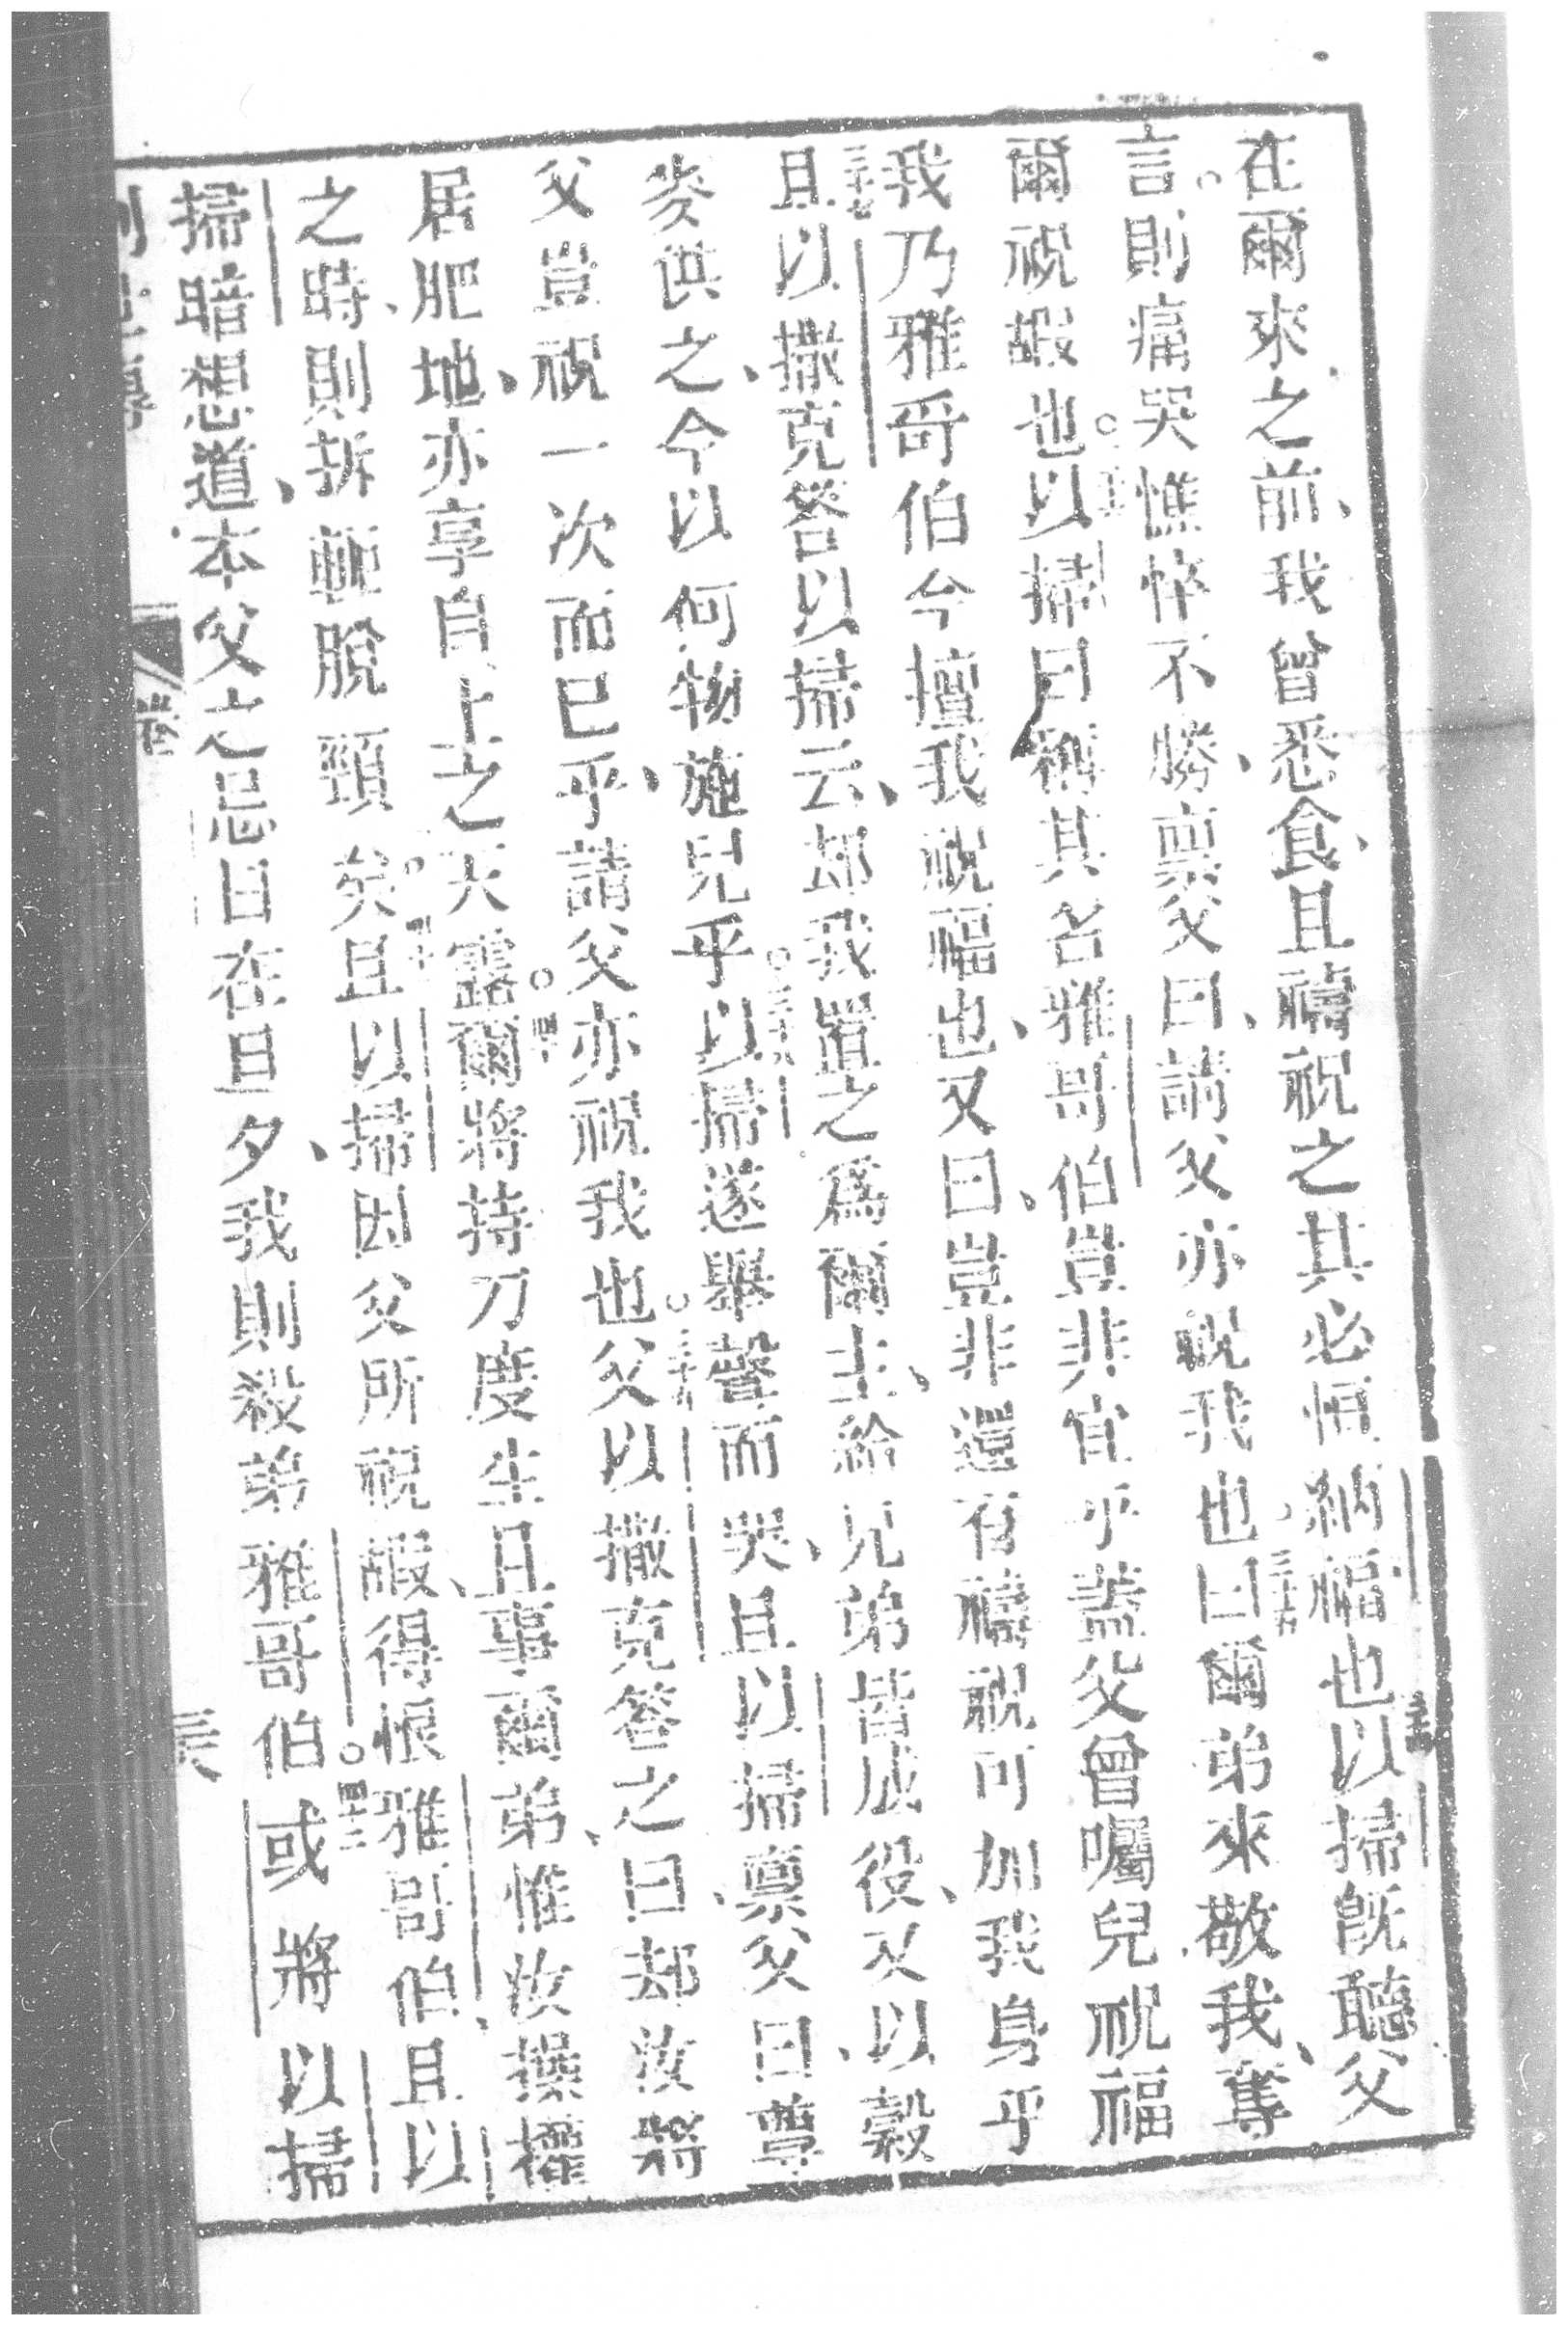 在爾來之前、我曾悉食、且禱祝之、其必恒納福也。三十四以掃旣聽父
言。則痛哭憔悴不勝、禀父曰、請父亦祝我也、三十五曰爾弟來敬我、奪
爾祝嘏也。三十六以掃曰、稱其名雅哥伯、豈非宜乎、蓋父曾囑兒祝福
我乃雅哥伯今擅我祝福也、又曰、豈非還有禱祝可加我身乎
三十七且以撒克答以掃云、却我置之爲爾主、給兄弟皆成役、又以穀
麥供之、今以何物施兒乎。三十八以掃遂舉聲而哭、且以掃禀父曰、尊
父豈祝一次而已乎、請父亦祝我也。三十九父以撒克答之曰、却汝將
居肥地、亦享自上之天露。四十爾將持刀度生、且事爾弟、惟汝操權
之時、則拆軛脫頸矣。四十一且以掃因父所祝嘏、得恨雅哥伯、且以
掃暗想道、本父之忌日在旦夕、我則殺弟雅哥伯。四十二或將以掃
卷